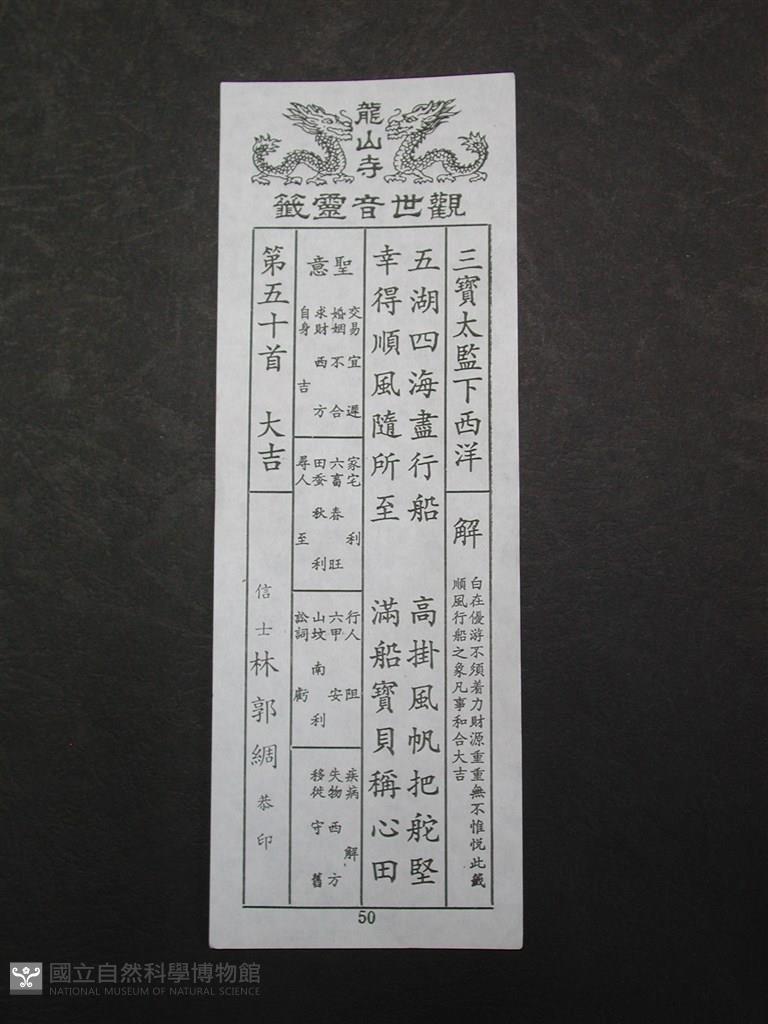 龍山寺
觀世音靈籤
三寶太監下西洋
解
自在優游不須着力財源重重無不惟悅此籤
順風行船之象凡事和合大吉
五湖四海盡行船 高掛風帆把舵堅
幸得順風隨所至 滿船寶貝稱心田
聖意
交易宜遲
婚姻不合
求財西方
自身吉
家宅利
六畜春旺
田蚕秋利
尋人至
行人阻
六甲安
山坟南利
訟詞虧
疾病解
失物西方
移徙守舊
第五十首 大吉
信士林郭綢恭印
50
國立自然科學博物館
NATIONAL MUSEUM OF NATURAL SCIENCE